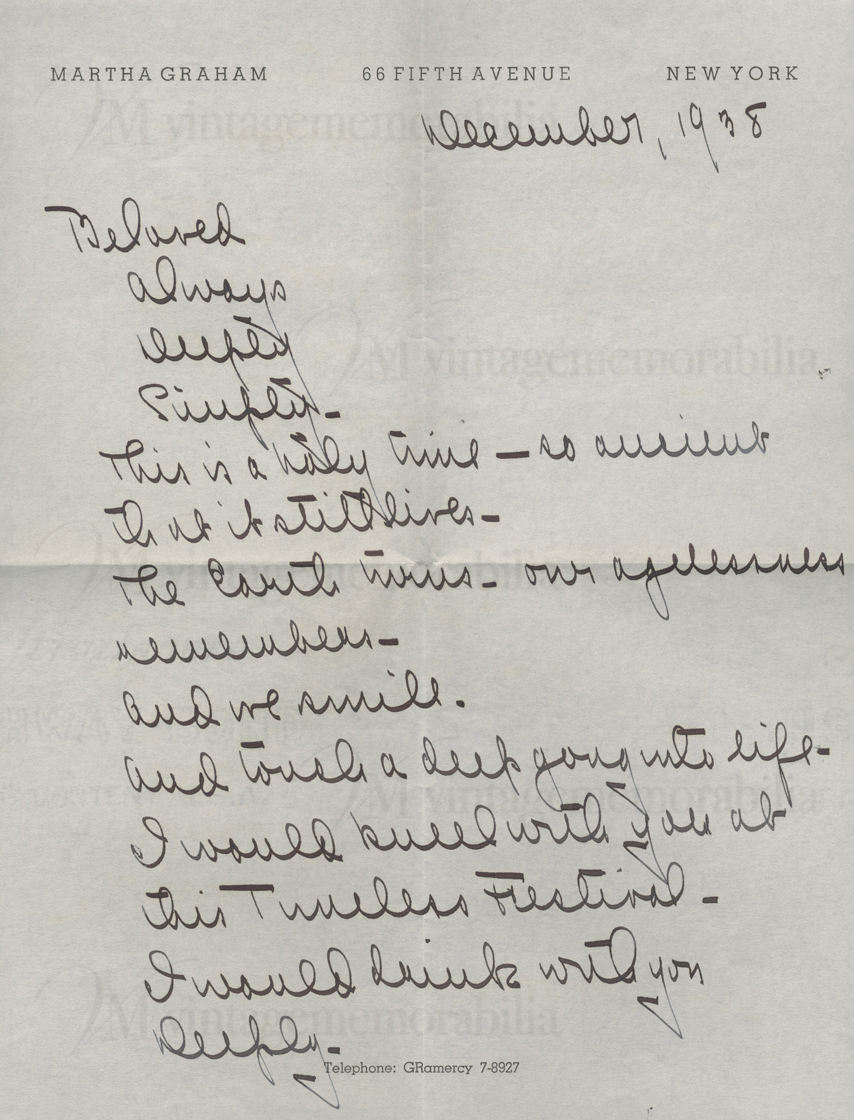 MARTHA GRAHAM 66 FIFTH AVENUE NEW YORK
December, 1938
Beloved
Always
Deeply
Simply-
This is a holy time — so ancient
that it still lives-
The Earth turns - our agelessness
remembers-
and we smile.
And touch a deep gong into life-
I would kneel with you at
this Timeless Festival -
I would drink with you
Deeply-
Telephone: GRamercy 7-8927
vintagememorabilia
vintagememorabilia
vintagememorabilia
vintagememorabilia
vintagememorabilia